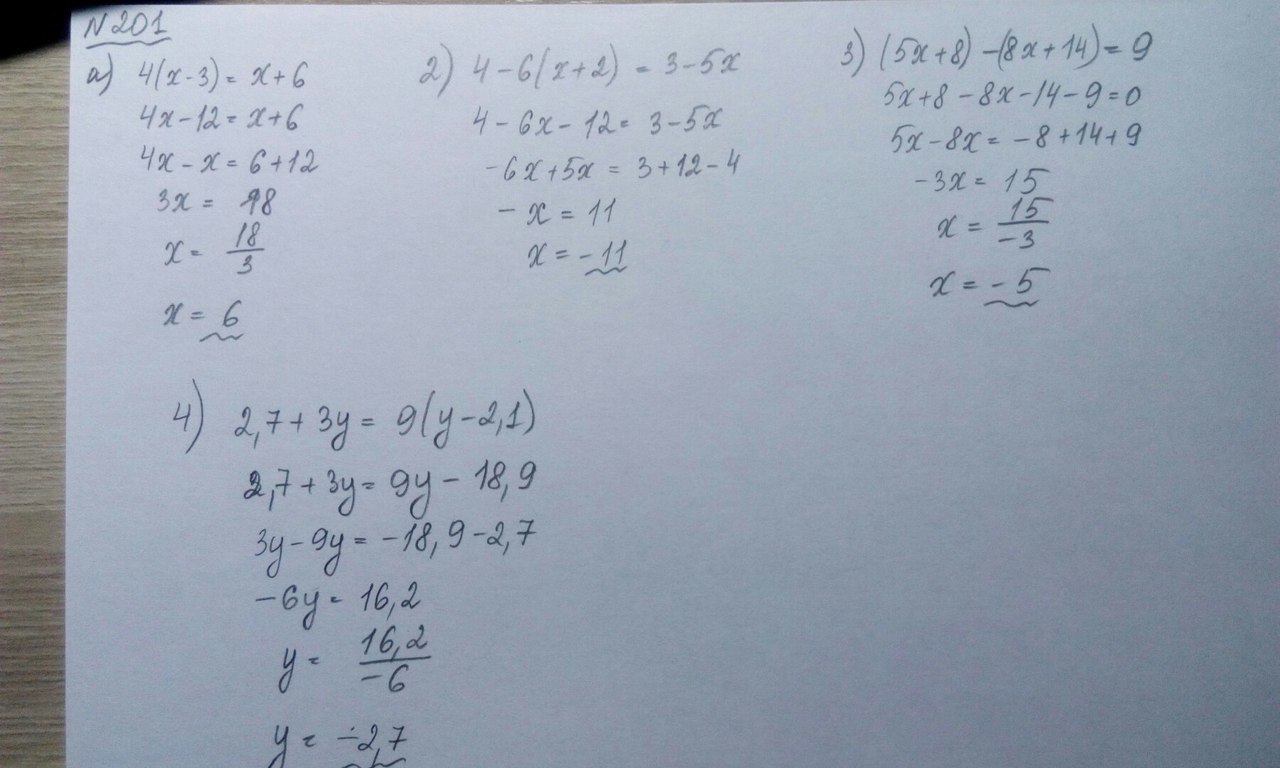 N 201
а) 4(x-3) = x+6
4x-12 = x+6
4x-x = 6+12
3x = 18
x = 18/3
x = 6
2) 4-6(x+2) = 3-5x
4-6x-12 = 3-5x
-6x+5x = 3+12-4
-x = 11
x = -11
3) (5x+8)-(8x+14) = 9
5x+8-8x-14-9=0
5x-8x = -8+14+9
-3x = 15
x = 15/-3
x = -5
4) 2,7+3y = 9(y-2,1)
2,7+3y = 9y-18,9
3y-9y = -18,9-2,7
-6y = 16,2
y = 16,2/-6
y = -2,7